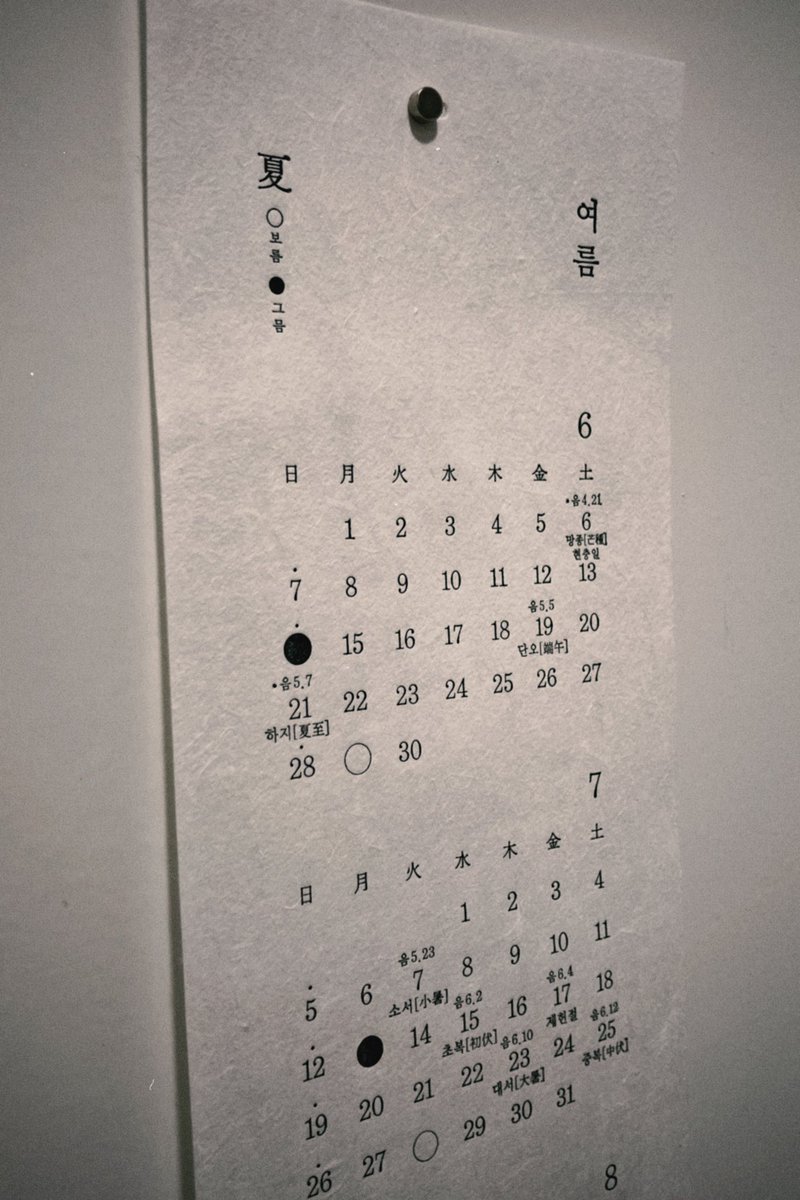 夏
○보름 ●그믐
여름
6
日 月 火 水 木 金 土
•음4.21
1 2 3 4 5 6
망종[芒種]
현충일
7 8 9 10 11 12 13
음5.5
● 15 16 17 18 19 20
단오[端午]
•음5.7
21 22 23 24 25 26 27
하지[夏至]
28 ○ 30
7
日 月 火 水 木 金 土
1 2 3 4
음5.23
5 6 7 8 9 10 11
소서[小暑]
음6.2 음6.4
12 ● 14 15 16 17 18
초복[初伏] 제헌절
음6.10 음6.12
19 20 21 22 23 24 25
대서[大暑] 중복[中伏]
26 27 ○ 29 30 31
8